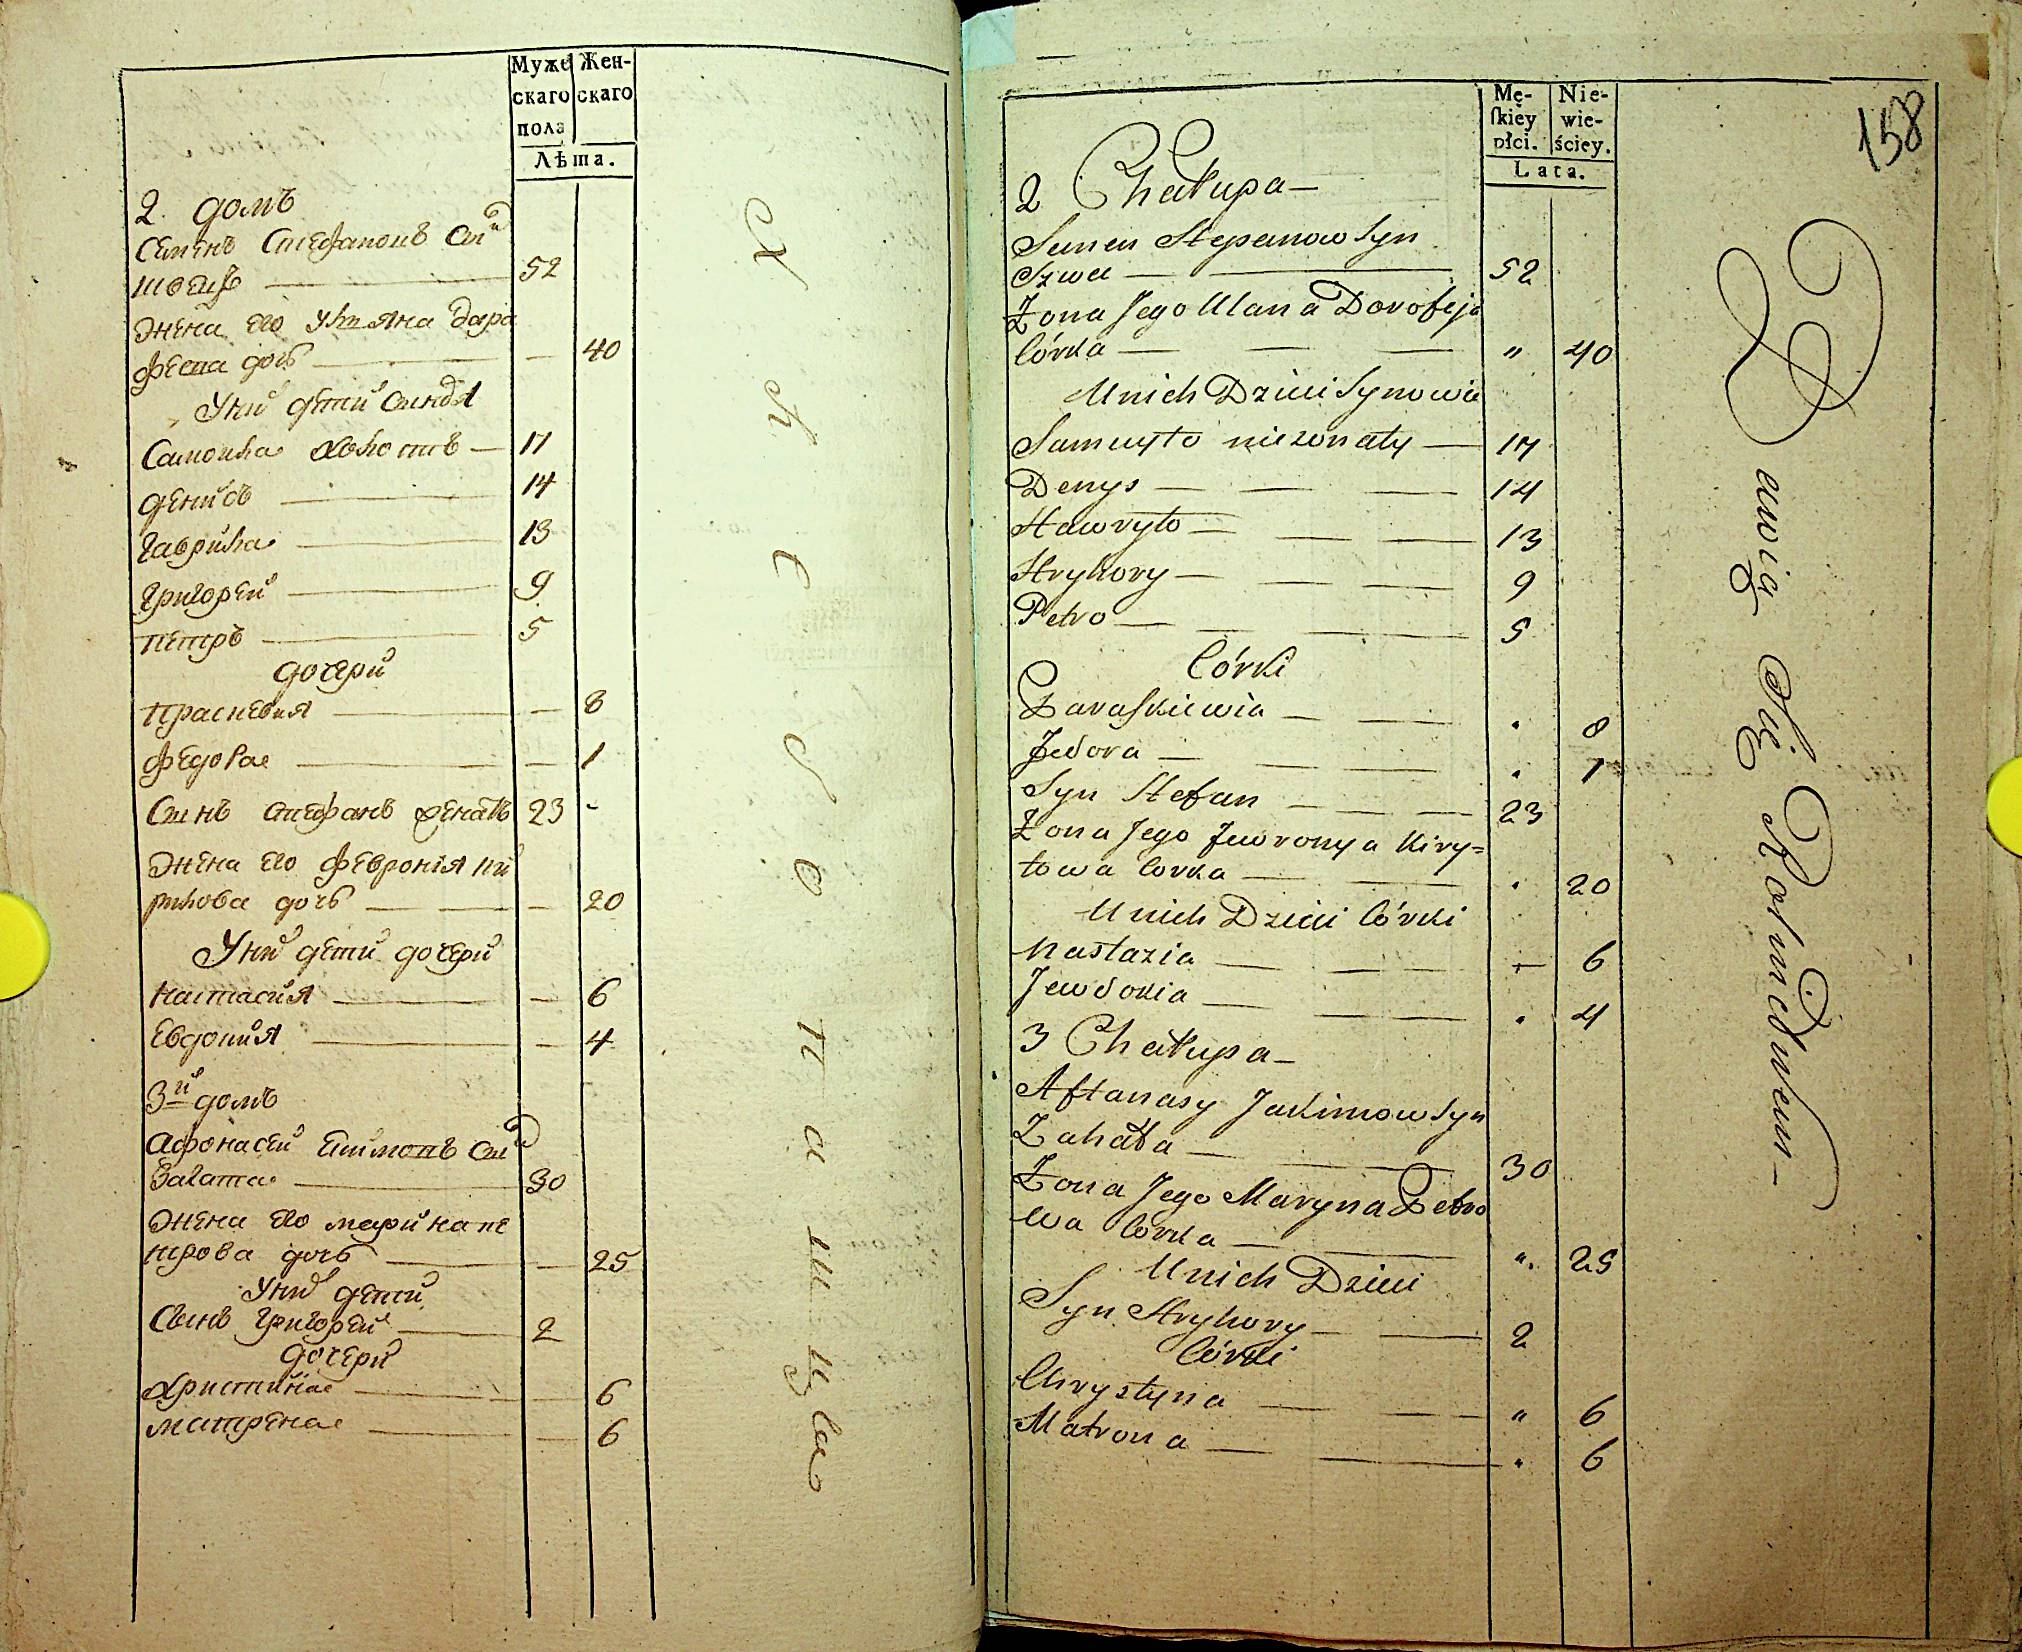 Муже Жен-
скаго скаго
пола
Лѣта.
2. домъ
Семенъ Стефановъ Синъ
швецъ 52
Жена его Уляна Доро
феева дочь — 40
У них дети Синовя
Самойла холостъ — 17
Денисъ 14
Гаврила 13
Григорей 9
Петръ 5
дочери
Прасковия — 8
Федора — 1
Синъ Стефанъ женатъ 23 -
Жена его Феврония Ки
рилова дочь — 20
У них дети дочери
Настасия — 6
Евдокия — 4
3й домъ
Афонасей Екимовъ Синъ
Загата 30
Жена его Марина Пе
трова дочь — 25
У них дети
Сынъ Григорей 2
дочери
Христина — 6
Матрена — 6
Mę- Nie-
skiey wie-
płci. ściey.
Lata.
158
2 Chałupa —
Semen Stepanow Syn
Szwec — 52
Żona Jego Ulana Dorofeja
Córka — „ 40
U nich Dzieci Synowie
Samuyło nieżonaty — 17
Denys — 14
Hawryło — 13
Hryhory — 9
Petro — 5
Córki
Paraskiewia — . 8
Fedora — . 1
Syn Stefan — 23
Żona Jego Jewronya Kiry=
łowa Corka — . 20
U nich Dzieci Córki
Nastazia — 6
Jewdokia — . 4
3 Chałupa —
Aftanasy Jakimow Syn
Zahata — 30
Żona Jego Maryna Petro
wa Córka — „ 25
U nich Dzieci
Syn Hryhory — 2
Córki
Chrystyna — „ 6
Matrona — . 6
Rewią